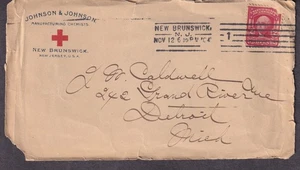 JOHNSON & JOHNSON
MANUFACTURING CHEMISTS.
NEW BRUNSWICK,
NEW JERSEY, U.S.A.
NEW BRUNSWICK,
N.J.
NOV 12
1
J. W. Caldwell
240 Grand River Ave
Detroit
Mich